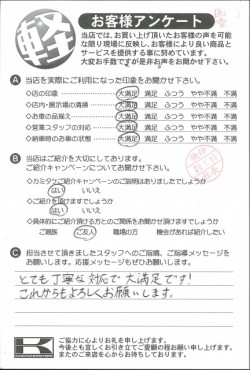 軽
お客様アンケート
当店では、お買い上げ頂いたお客様の声を可能
な限り現場に反映し、お客様により良い商品と
サービスを提供する事に努めています。
大変お手数ですが是非お声をお聞かせ下さい。
A 当店を実際にご利用になった印象をお聞かせ下さい。
◇店の印象 大満足 満足 ふつう やや不満 不満
◇店内・展示場の清掃 大満足 満足 ふつう やや不満 不満
◇お車の品揃え 大満足 満足 ふつう やや不満 不満
◇営業スタッフの対応 大満足 満足 ふつう やや不満 不満
◇納車時のお車の状態 大満足 満足 ふつう やや不満 不満
B 当店はご紹介を大切にしております。
ご紹介キャンペーンについてお聞かせ下さい。
◇カミタケご紹介キャンペーンのご説明はありましたでしょうか
はい いいえ
◇ご紹介を頂けますでしょうか
はい いいえ
◇具体的にご紹介頂ける方とのご関係をお聞かせ頂けますでしょうか
ご親族 ご友人 職場の方 機会があれば紹介したい
C 担当させて頂きましたスタッフへのご指摘、ご指導メッセージを
お願いします。応援メッセージもぜひお聞かせ下さい。
とても丁寧な対応で大満足です！
これからもよろしくお願いします。
K
ご協力に心よりお礼を申し上げます。
今後も宜しくお引き立てご愛顧の程お願い申し上げます。
またのご来店を心からお待ちしております。